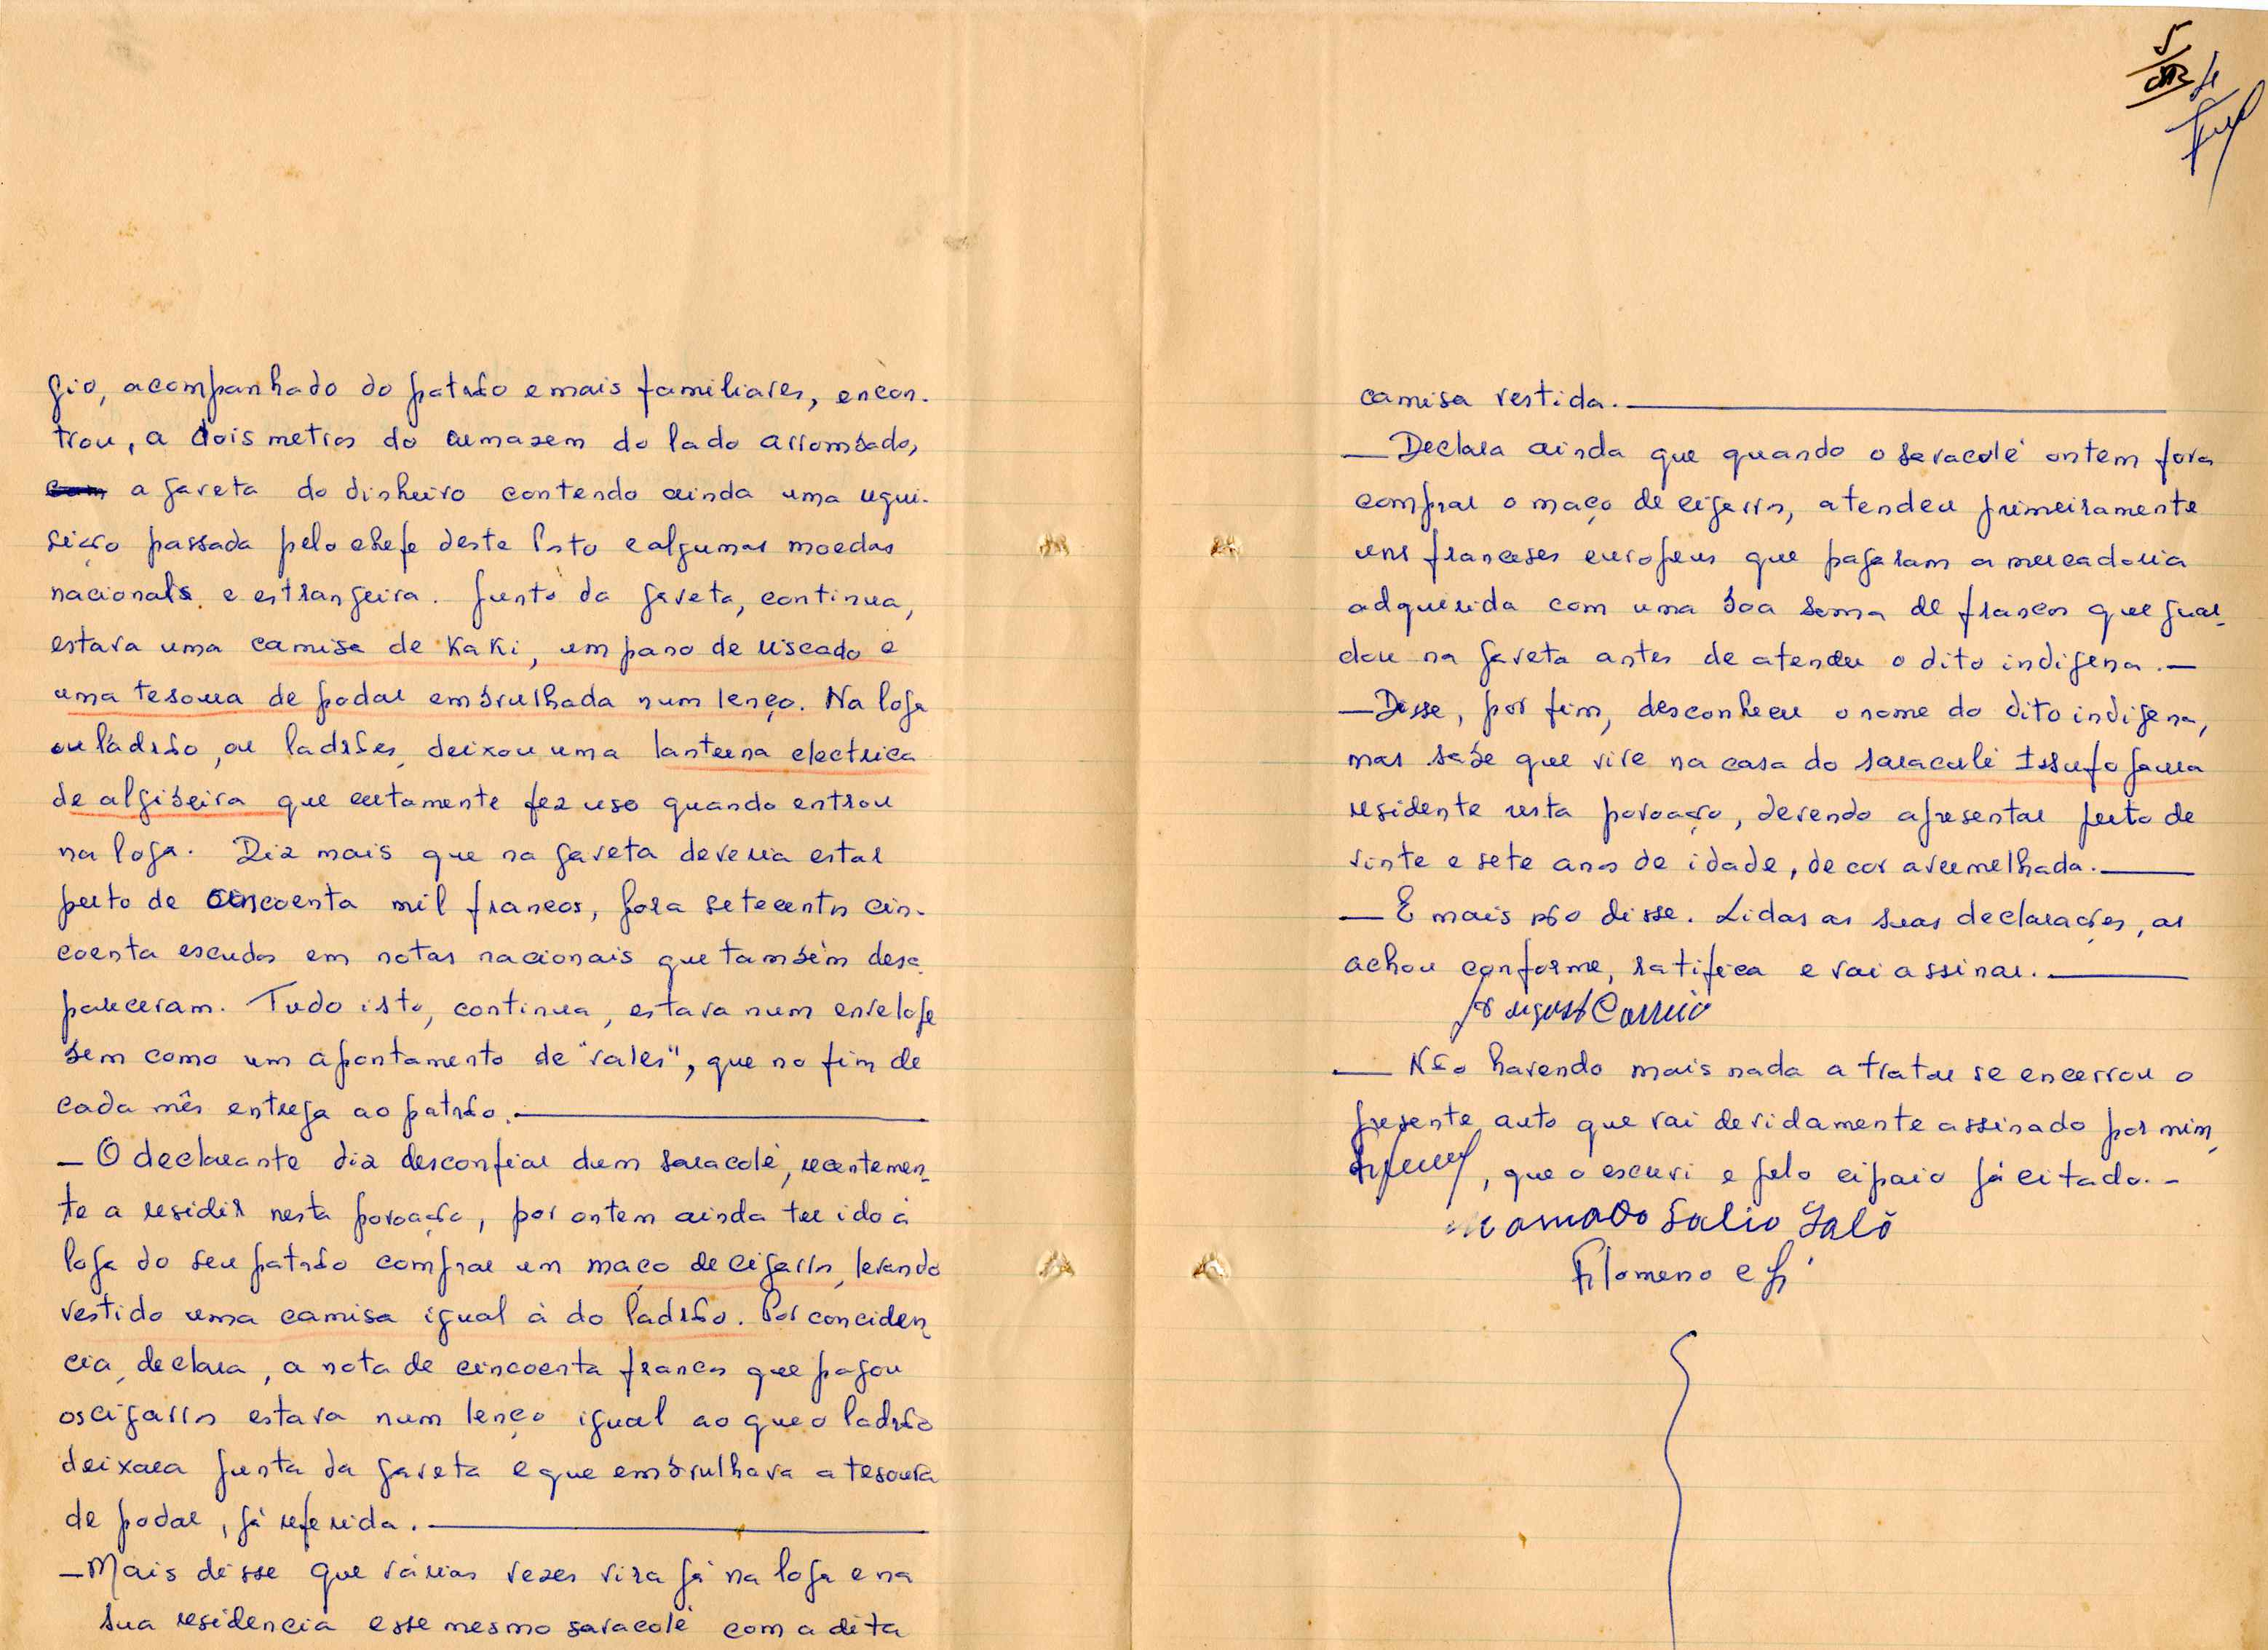 gio, acompanhado do patrão e mais familiares, encon-
trou, a dois metros do armazem do lado arrombado,
com a gaveta do dinheiro contendo ainda uma requi-
sição passada pelo chefe deste Posto e algumas moedas
nacionals e estrangeira. Junto da gaveta, continua,
estava uma camisa de KaKi, um pano de riscado e
uma tesoura de podar embrulhada num lenço. Na loja
ou ladrão, ou ladrões, deixou uma lanterna electrica
de algibeira que certamente fez uso quando entrou
na loja. Diz mais que na gaveta deveria estar
perto de cincoenta mil francos, fora setecentos cin-
coenta escudos em notas nacionais que também desa-
pareceram. Tudo isto, continua, estava num envelope
bem como um apontamento de "vales", que no fim de
cada mês entrega ao patrão.
— O declarante diz desconfiar dum saracolé, recentemen-
te a residir nesta povoação, por ontem ainda ter ido á
loja do seu patrão comprar um maço de cigarros, levando
vestido uma camisa igual á do ladrão. Por conciden-
cia, declara, a nota de cincoenta francos que pagou
os cigarros estava num lenço igual ao que o ladrão
deixara junta da gaveta e que embrulhava a tesoura
de podar, já referida.
— Mais disse que várias vezes vira já na loja e na
sua residencia esse mesmo saracolé com a dita
5
camisa vestida.
— Declara ainda que quando o saracolé ontem fora
comprar o maço de cigarros, atendeu primeiramente
uns franceses europeus que pagaram a mercadoria
adquerida com uma boa soma de francos que guar-
dou na gaveta antes de atender o dito indigena.—
— Disse, por fim, desconhecer o nome do dito indigena,
mas sabe que vive na casa do saraculé Issufo
residente nesta povoação, devendo apresentar perto de
vinte e sete anos de idade, de cor avermelhada.
— E mais não disse. Lidas as suas declarações, as
achou conforme, ratifica e vai assinar.
Correia
— Não havendo mais nada a tratar se encerrou o
presente auto que vai devidamente assinado por mim,
, que o escrevi e pelo cipaio já citado.-
Mamado Salio Jaló
Filomeno e